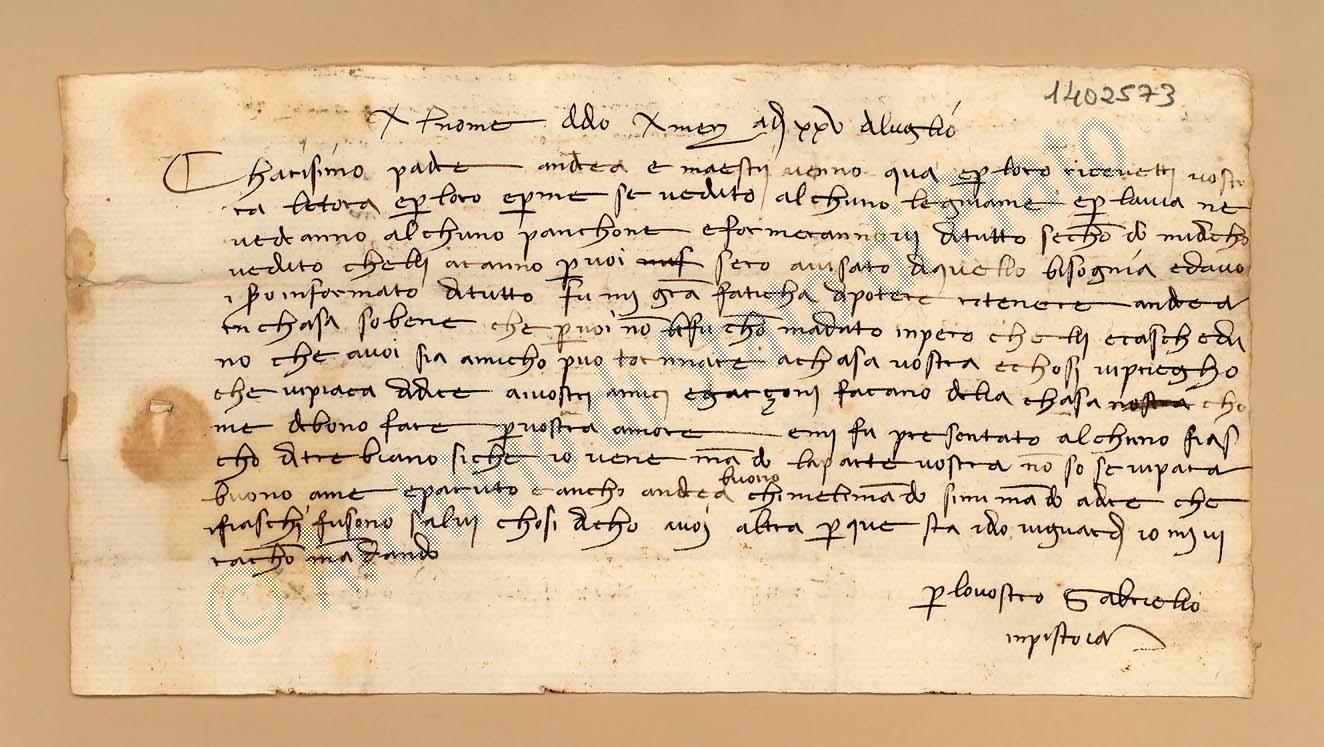 1402573
nome ddo Amen adj xxv dluglio
Charisimo padre andrea e maestri venno qua e per loro ricevetti vostr
ra letora e per loro e per me se veduto alchuno legniame e per lavia ne
vedranno alchuno panchone e formerannovi ditutto sechō do midicho
veduto chelli aranno p voi sero avisato diquello bisognia edavo
informato ditutto fu mi grā faticha dpotere ritenere andrea
in chasa sobene che p voi nō chō mādato inpero che lli
no che avoi sia amicho puo tornnare achasa vostra echosi vipriegho
che vipiaca ddire avostri amici egarçoni facano della chasa cho
me debono fare p vostra amore emi fu presentato alchuno fias
cho ditrebiano siche io vene mādo laparte vostra nō so se vipara
buono ame eparuto e ancho andrea buono chimelimādo simi mādo adire che
ifiaschi fusono salvi chosi dicho avoi altra p que sta ido viguardj io mi vi
rachō mādando
p lovostro Gabriello
inpistoia
© Archivio di Stato di Prato